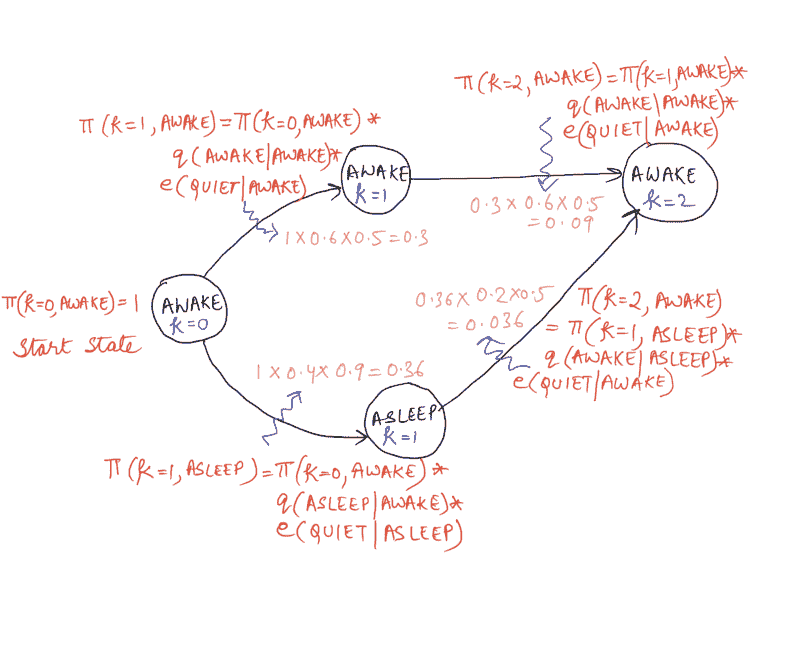 π(k=2, AWAKE) = π(k=1,AWAKE)*
q(AWAKE|AWAKE)*
e(QUIET|AWAKE)
π(k=1, AWAKE) = π(k=0,AWAKE) *
q(AWAKE|AWAKE)*
e(QUIET|AWAKE)
AWAKE
k=1
AWAKE
k=2
0.3 x 0.6 x 0.5
= 0.09
1 x 0.6 x 0.5 = 0.3
π(k=0,AWAKE) = 1
Start State
AWAKE
k=0
0.36 x 0.2 x 0.5
= 0.036
π(k=2, AWAKE)
= π(k=1, ASLEEP)*
q(AWAKE|ASLEEP)*
e(QUIET|AWAKE)
1 x 0.4 x 0.9 = 0.36
ASLEEP
k=1
π(k=1, ASLEEP) = π(k=0, AWAKE) *
q(ASLEEP|AWAKE)*
e(QUIET|ASLEEP)